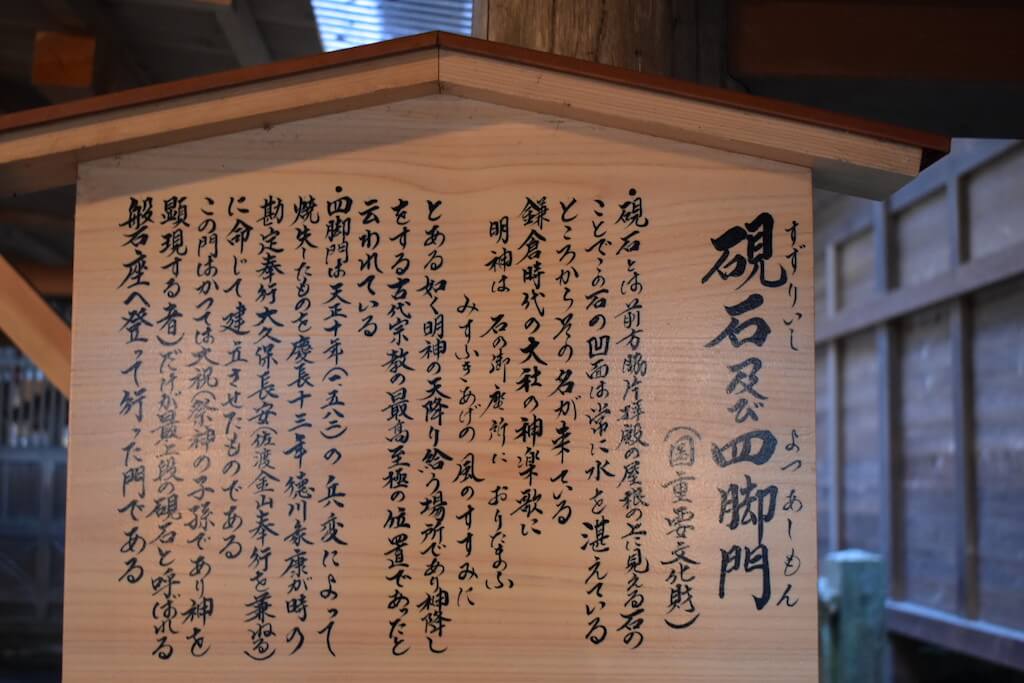 すずりいし　よつあしもん
硯石及び四脚門
（国重要文化財）
・硯石とは前方脇片拝殿の屋根の上に見える石の
ことでこの石の凹面は常に水を湛えている
ところからその名が来ている
鎌倉時代の大社の神楽歌に
明神は　石の御座所に　おりたまふ
みすふきあげの　風のすすみに
とある如く明神の天降り給う場所であり神降し
をする古代宗教の最高至極の位置であったと
云われている
・四脚門は天正十年（一五八二）の兵変によって
焼失したものを慶長十三年徳川家康が時の
勘定奉行大久保長安（佐渡金山奉行を兼ねる）
に命じて建立させたものである
この門はかつては大祝（祭神の子孫であり神を
顕現する者）だけが最上段硯石と呼ばれる
般石座へ登って行った門である